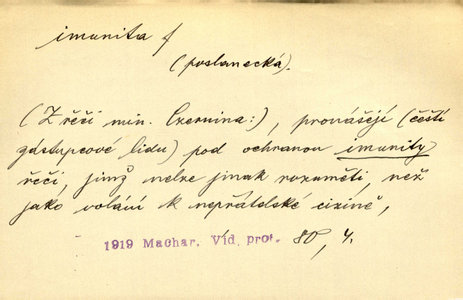 imunita f
(poslanecká).
(Z řečí min. Czernina:), pronášejí (čeští
zástupcové lidu) pod ochranou imunity
řeči, jimž nelze jinak rozuměti, než
jako volání k nepřátelské cizině,
1919 Machar, Víd. prof. 80, 4.